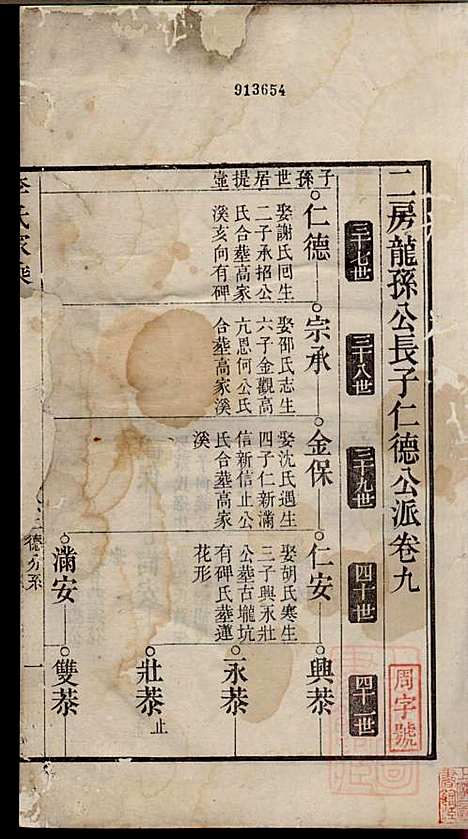 913654
二房龍孫公長子仁德公派卷九
周字號
三十七世
三十八世
三十九世
四十世
四十一世
子孫世居提壺
仁德
娶謝氏回生
二子承招公
氏合塟高家
溪亥向有碑
宗承
娶邵氏志生
六子金觀高
亢恩何公氏
合塟高家溪
金保
娶沈氏遇生
四子仁新滿
信新信止公
氏合塟高家
溪
仁安
娶胡氏寒生
三子興永壯
公塟古壠坑
有碑氏塟蓮
花形
興㳟
永㳟
壯㳟止
滿安
雙㳟
李氏家乘
德公系
一